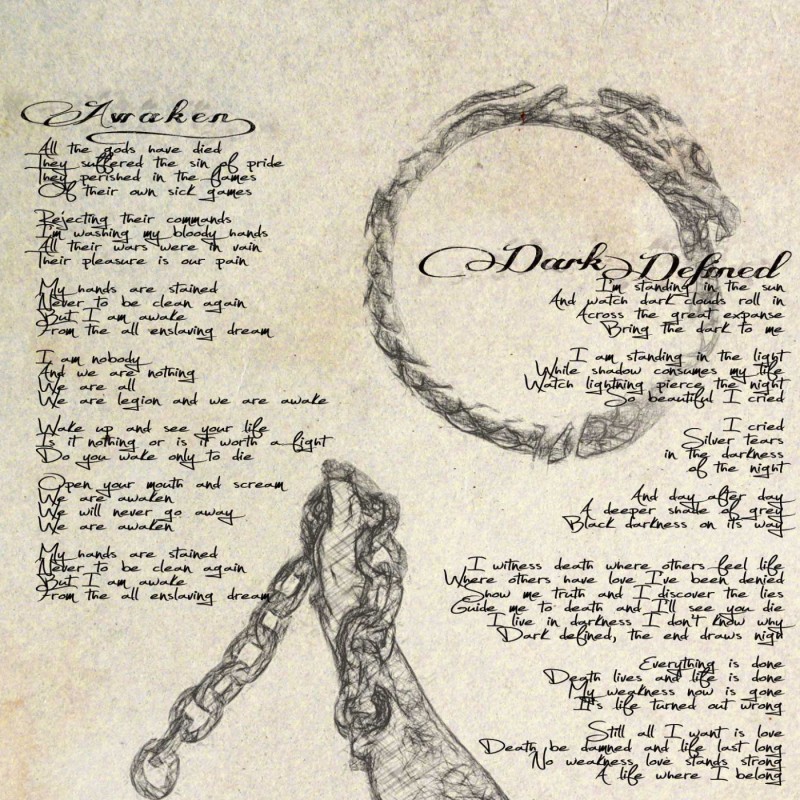 Awaken
All the gods have died
They suffered the sin of pride
They perished in the flames
Of their own sick games
Rejecting their commands
I'm washing my bloody hands
All their wars were in vain
Their pleasure is our pain
My hands are stained
Never to be clean again
But I am awake
From the all enslaving dream
I am nobody
And we are nothing
We are all
We are legion and we are awake
Wake up and see your life
Is it nothing or is it worth a fight
Do you wake only to die
Open your mouth and scream
We are awaken
We will never go away
We are awaken
My hands are stained
Never to be clean again
But I am awake
From the all enslaving dream
Dark Defined
I'm standing in the sun
And watch dark clouds roll in
Across the great expanse
Bring the dark to me
I am standing in the light
While shadow consumes my life
Watch lightning pierce the night
So beautiful I cried
I cried
Silver tears
in the darkness
of the night
And day after day
A deeper shade of grey
Black darkness on its way
I witness death where others feel life
Where others have love I've been denied
Show me truth and I discover the lies
Guide me to death and I'll see you die
I live in darkness I don't know why
Dark defined, the end draws nigh
Everything is done
Death lives and life is done
My weakness now is gone
It's life turned out wrong
Still all I want is love
Death be damned and life last long
No weakness love stands strong
A life where I belong